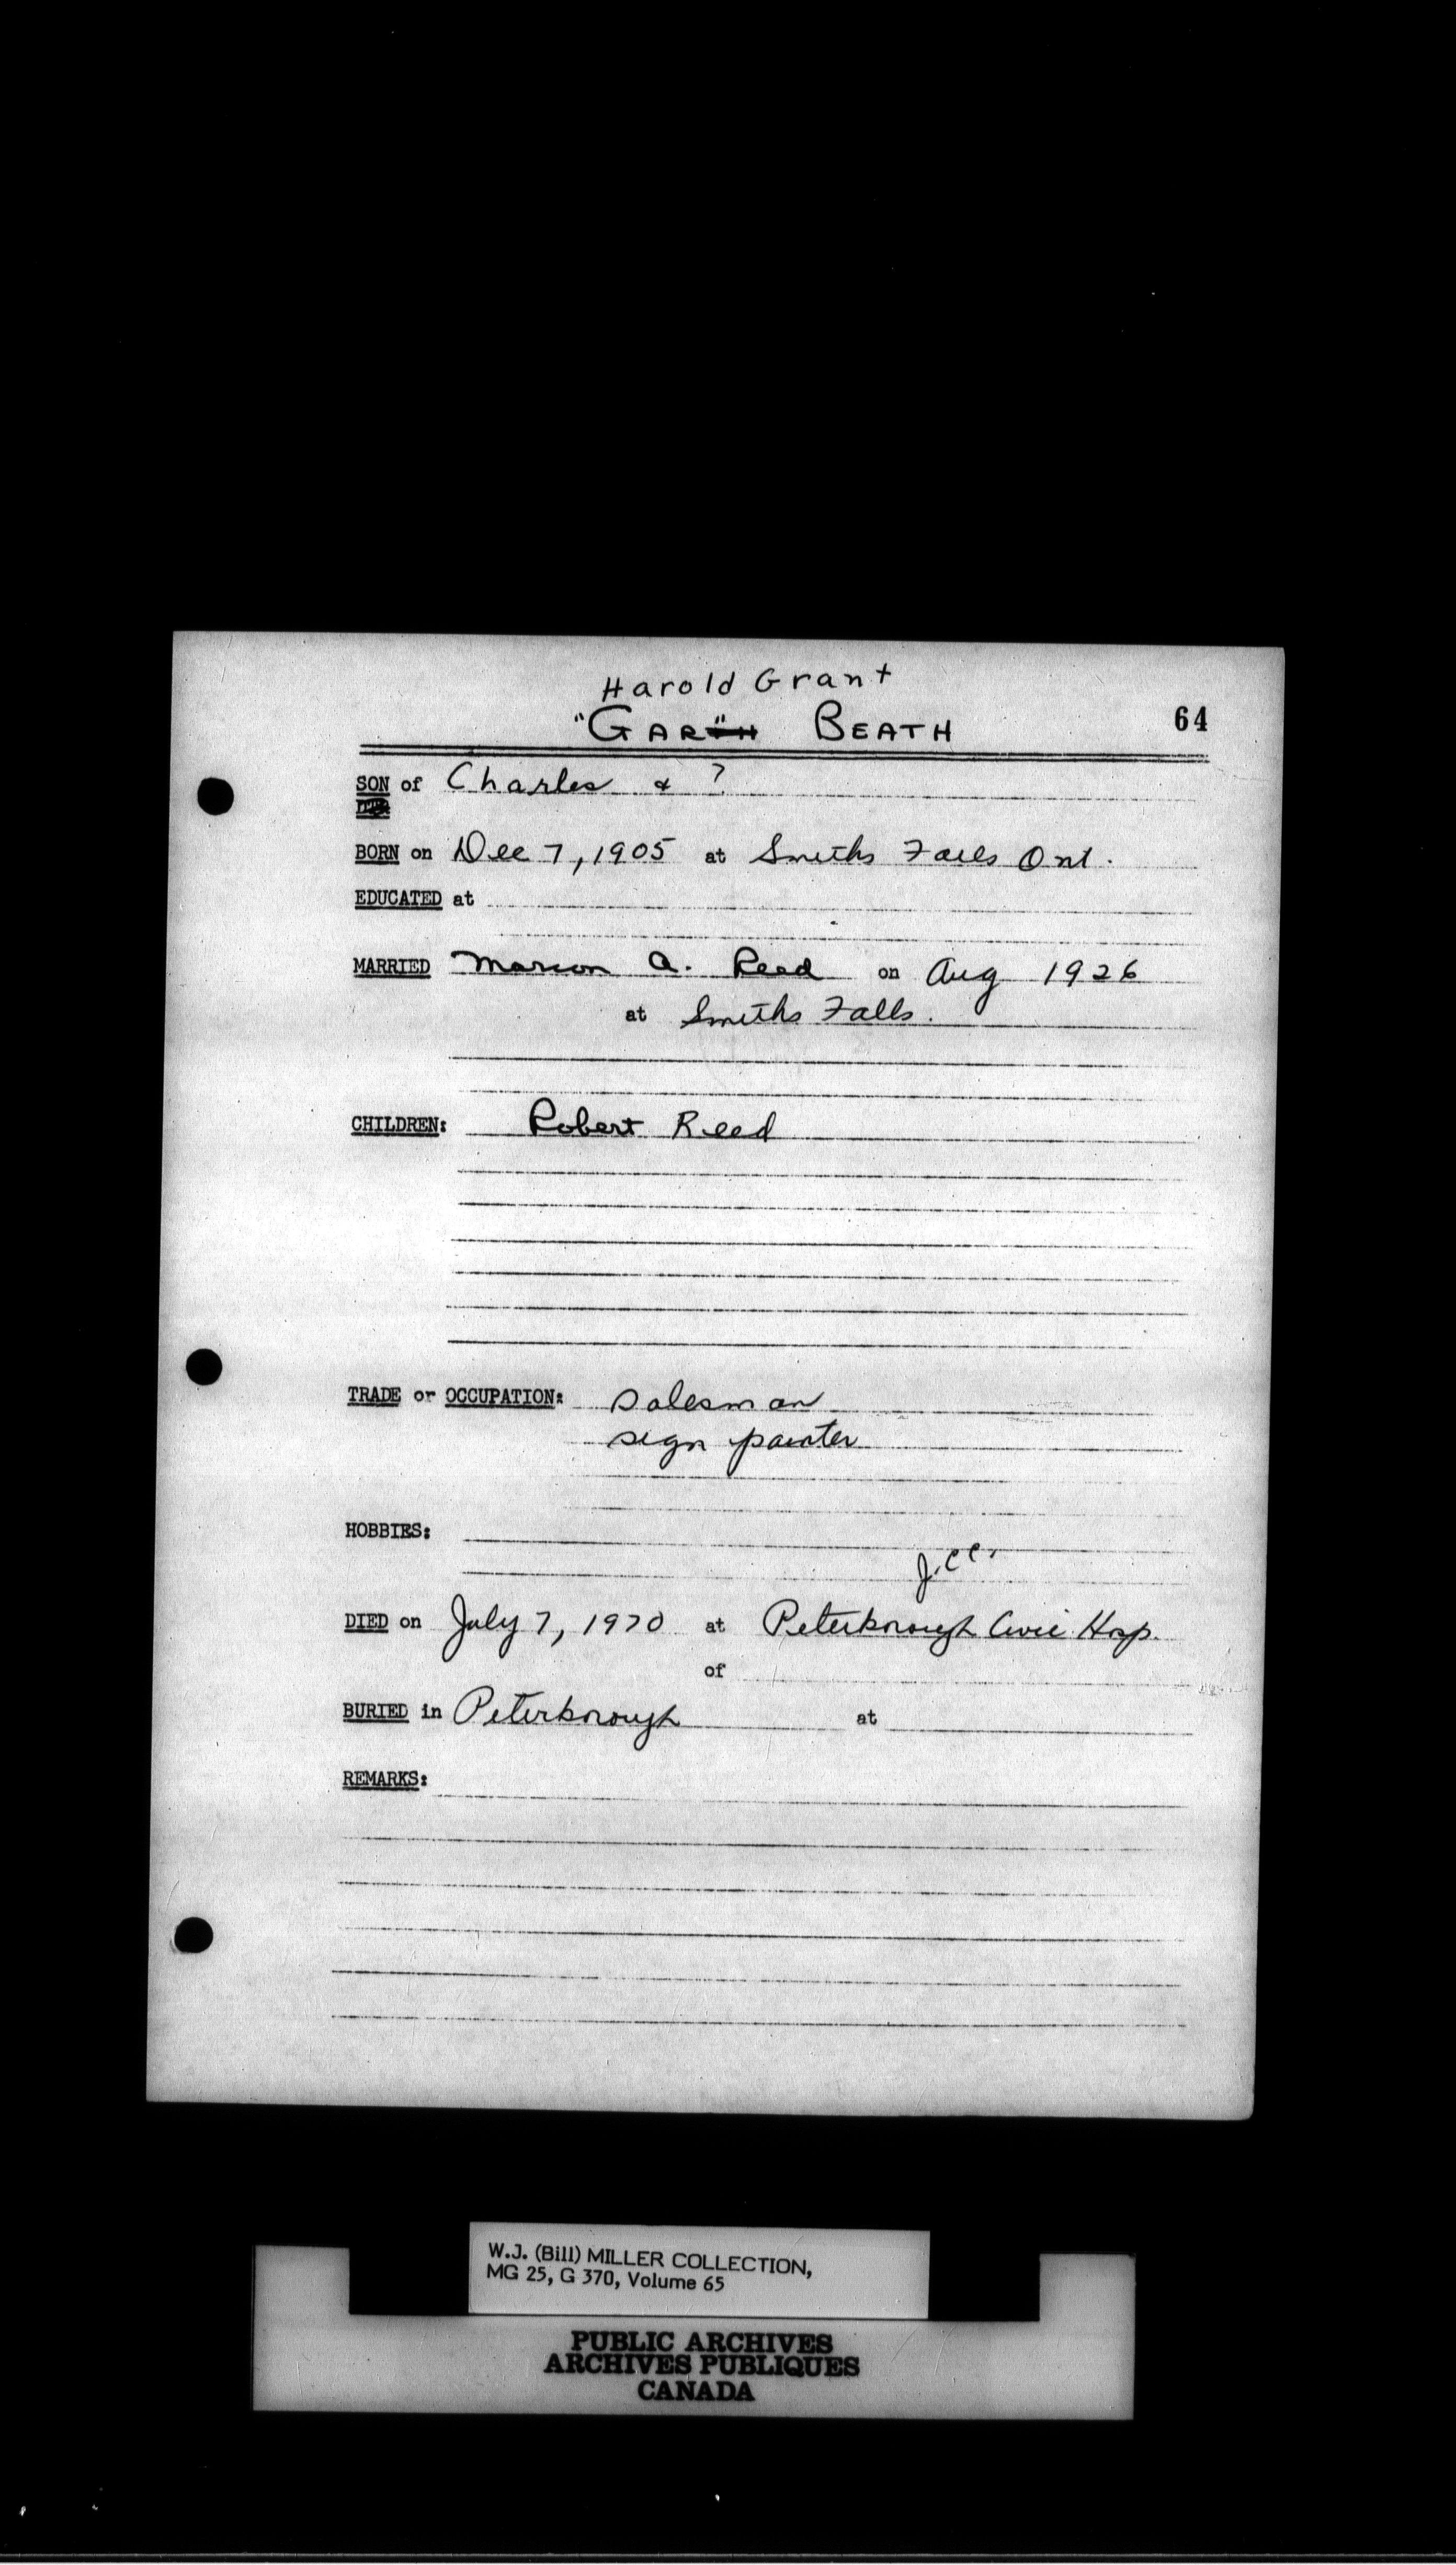 Harold Grant
"GAR" BEATH 64
SON of Charles & ?
BORN on Dec 7, 1905 at Smiths Falls Ont.
EDUCATED at
MARRIED Marion A. Reed on Aug 1926
at Smiths Falls.
CHILDREN: Robert Reed
TRADE or OCCUPATION: salesman
sign painter
HOBBIES:
DIED on July 7, 1970 at Peterborough Civic Hosp.
of
BURIED in Peterborough at
REMARKS:
W.J. (Bill) MILLER COLLECTION,
MG 25, G 370, Volume 65
PUBLIC ARCHIVES
ARCHIVES PUBLIQUES
CANADA